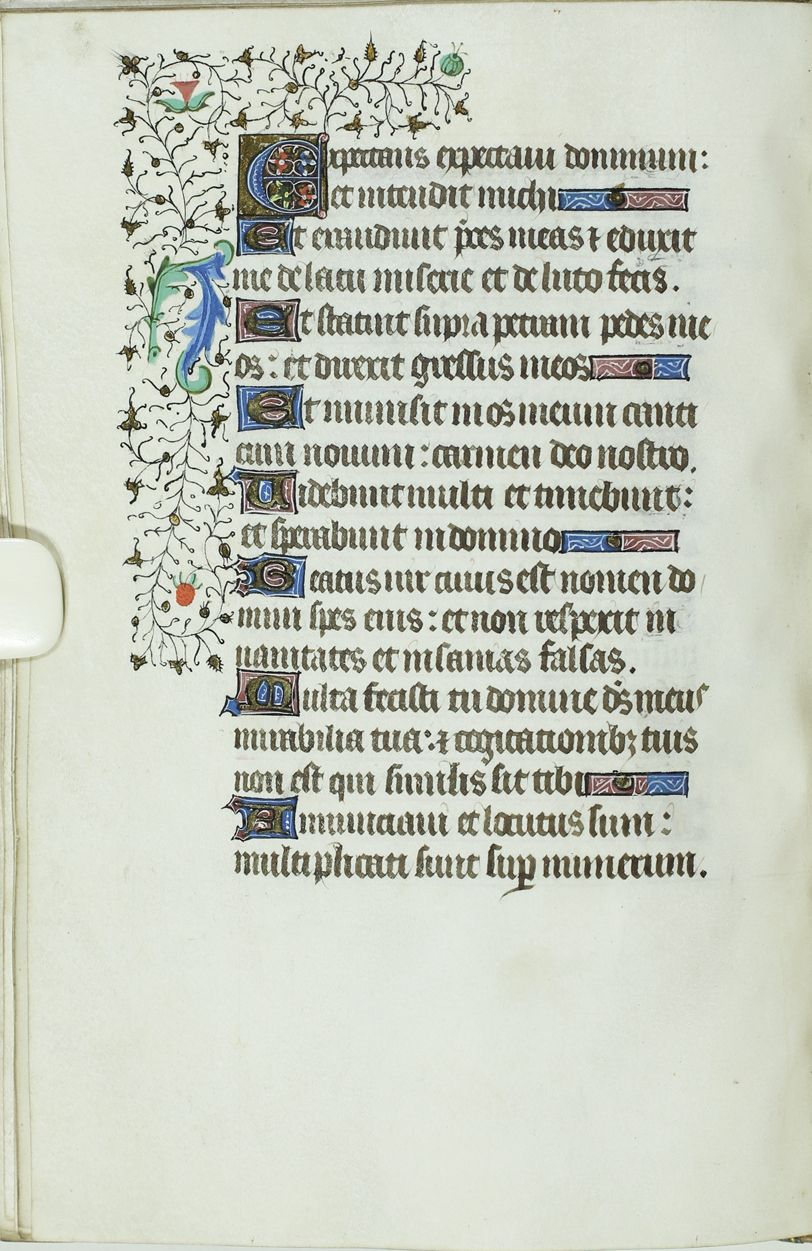 Expectans expectaui dominum:
et intendit michi
Et exaudiuit p̄ces meas ⁊ eduxit
me de lacu miserie et de luto fecis.
Et statuit supra petram pedes me
os: et direxit gressus meos
Et inmisit in os meum canti
cum nouum: carmen deo nostro.
Uidebunt multi et timebunt:
et sperabunt in domino
Beatus uir cuius est nomen do
mini spes eius: et non respexit in
uanitates et insanias falsas.
Multa fecisti tu domine d̄s meus
mirabilia tua: ⁊ cogitationibꝫ tuis
non est qui similis sit tibi
Annunciaui et locutus sum:
multiplicati sunt suꝑ numerum.